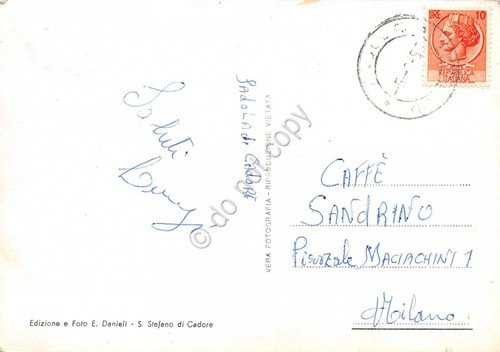 LIRE 10
REPUBBLICA
ITALIANA
PADOLA di CADORE
Saluti
CAFFÈ
SANDRINO
Piazzale MACIACHINI 1
Milano
VERA FOTOGRAFIA - RIPRODUZIONE VIETATA
Edizione e Foto E. Danieli - S. Stefano di Cadore
© do not copy